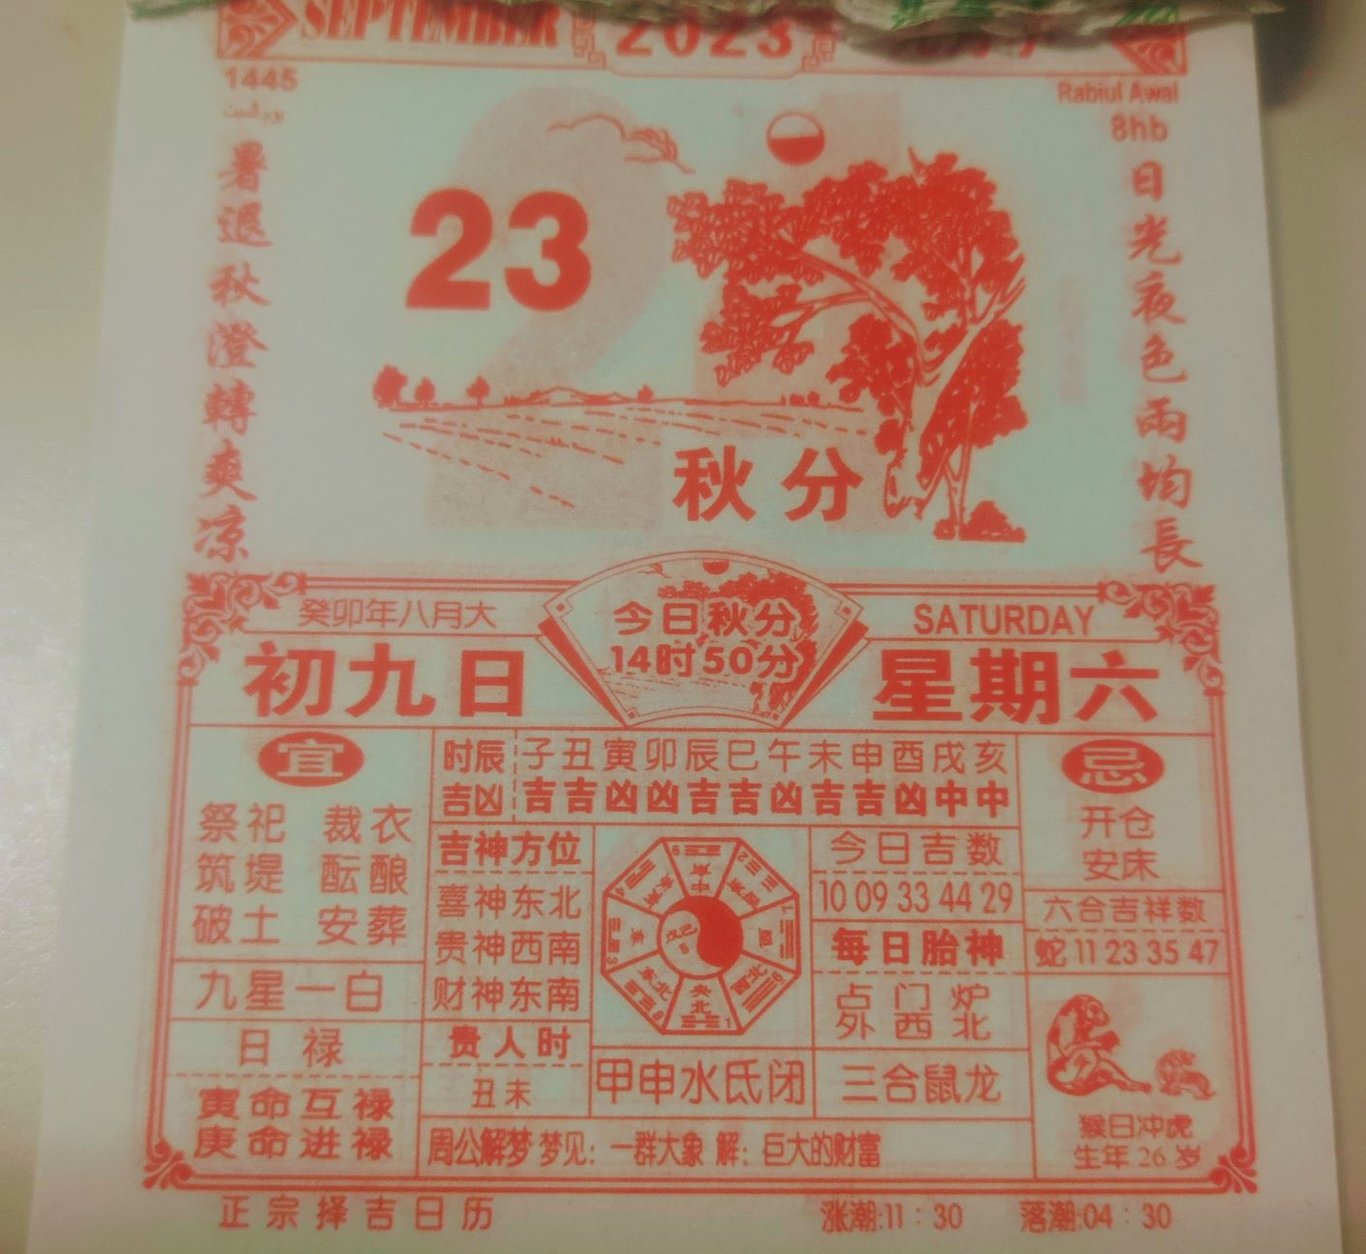 SEPTEMBER 2023
1445
Rabiul Awal
8hb
暑退秋澄轉爽凉
日光夜色兩均長
23
秋分
癸卯年八月大
今日秋分
14时50分
SATURDAY
初九日
星期六
宜
祭祀 裁衣
筑堤 酝酿
破土 安葬
九星一白
日禄
寅命互禄
庚命进禄
时辰 子丑寅卯辰巳午未申酉戌亥
吉凶 吉吉凶凶吉吉凶吉吉凶中中
吉神方位
喜神东北
贵神西南
财神东南
贵人时
丑未
甲申水氐闭
今日吉数
10 09 33 44 29
每日胎神
占门炉
外西北
三合鼠龙
忌
开仓
安床
六合吉祥数
蛇 11 23 35 47
猴日冲虎
生年26岁
周公解梦 梦见：一群大象 解：巨大的财富
正宗择吉日历
涨潮:11：30 落潮:04：30